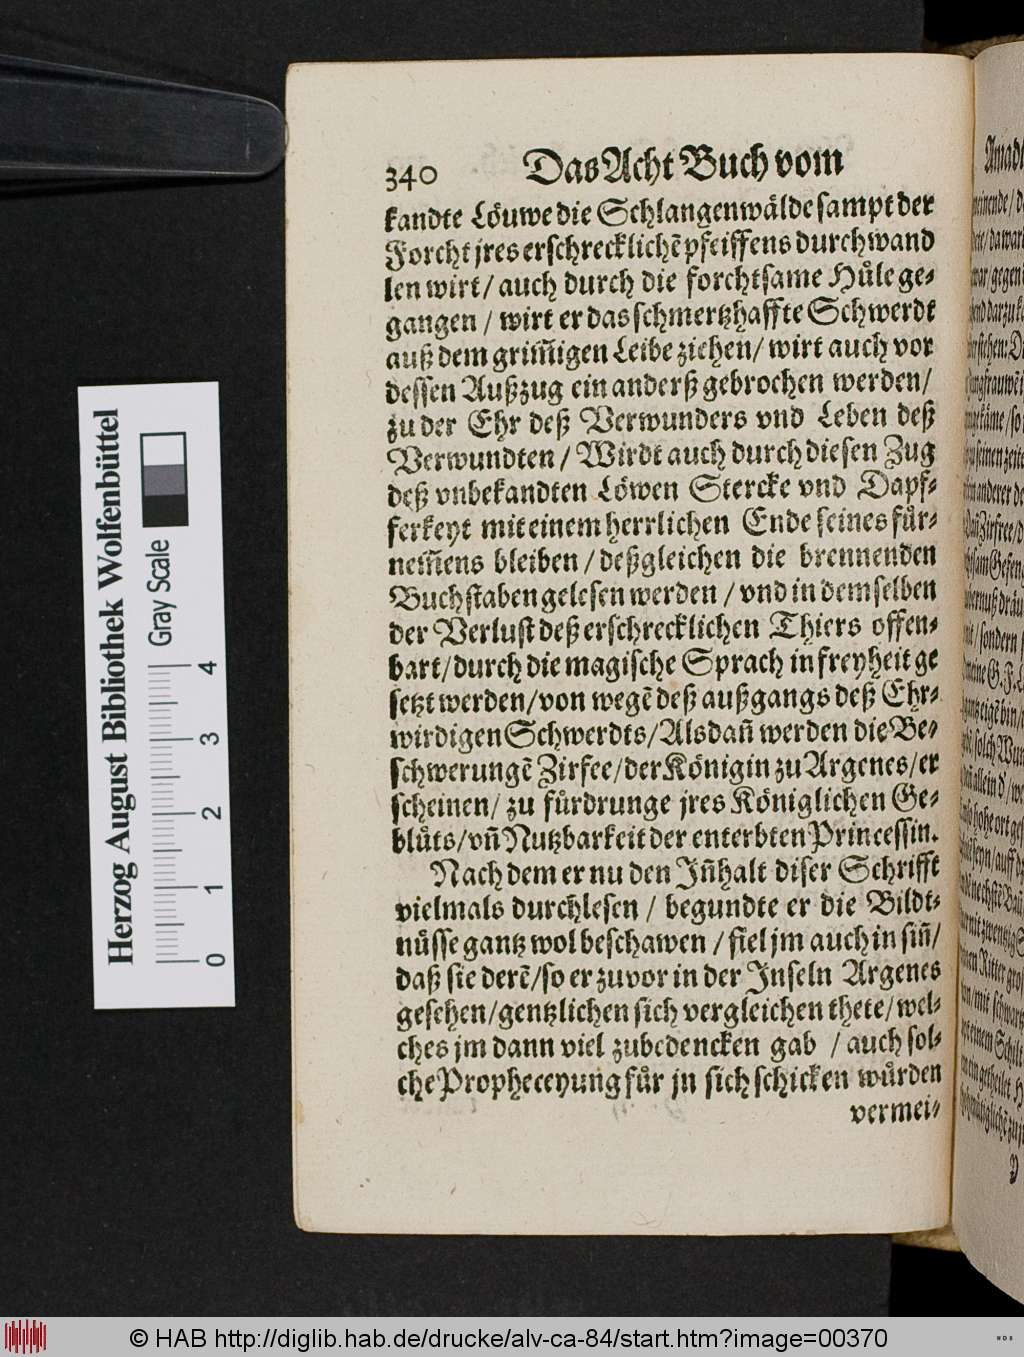 340 Das Acht Buch vom
kandte Löuwe die Schlangenwälde sampt der
Forcht jres erschrecklichē pfeiffens durchwand
len wirt / auch durch die forchtsame Hüle ge-
gangen / wirt er das schmertzhaffte Schwerdt
auß dem grim̄igen Leibe ziehen / wirt auch vor
dessen Außzug ein anderß gebrochen werden /
zu der Ehr deß Verwunders vnd Leben deß
Verwundten / Wirdt auch durch diesen Zug
deß vnbekandten Löwen Stercke vnd Dapf-
ferkeyt mit einem herrlichen Ende seines für-
nem̄ens bleiben / deßgleichen die brennenden
Buchstaben gelesen werden / vnd in demselben
der Verlust deß erschrecklichen Thiers offen-
bart / durch die magische Sprach in freyheit ge
setzt werden / von wegē deß außgangs deß Ehr-
wirdigen Schwerdts / Alsdañ werden die Be-
schwerungē Zirfee / der Königin zu Argenes / er
scheinen / zu fürdrunge jres Königlichen Ge-
blüts / vñ Nutzbarkeit der enterbten Princessin.
Nach dem er nu den Jñhalt diser Schrifft
vielmals durchlesen / begundte er die Bildt-
nüsse gantz wol beschawen / fiel jm auch in siñ /
daß sie derē / so er zuvor in der Jnseln Argenes
gesehen / gentzlichen sich vergleichen thete / wel-
ches jm dann viel zubedencken gab / auch sol-
che Propheceyung für jn sich schicken würden
vermei-
Herzog August Bibliothek Wolfenbüttel
Gray Scale
0 1 2 3 4
© HAB http://diglib.hab.de/drucke/alv-ca-84/start.htm?image=00370